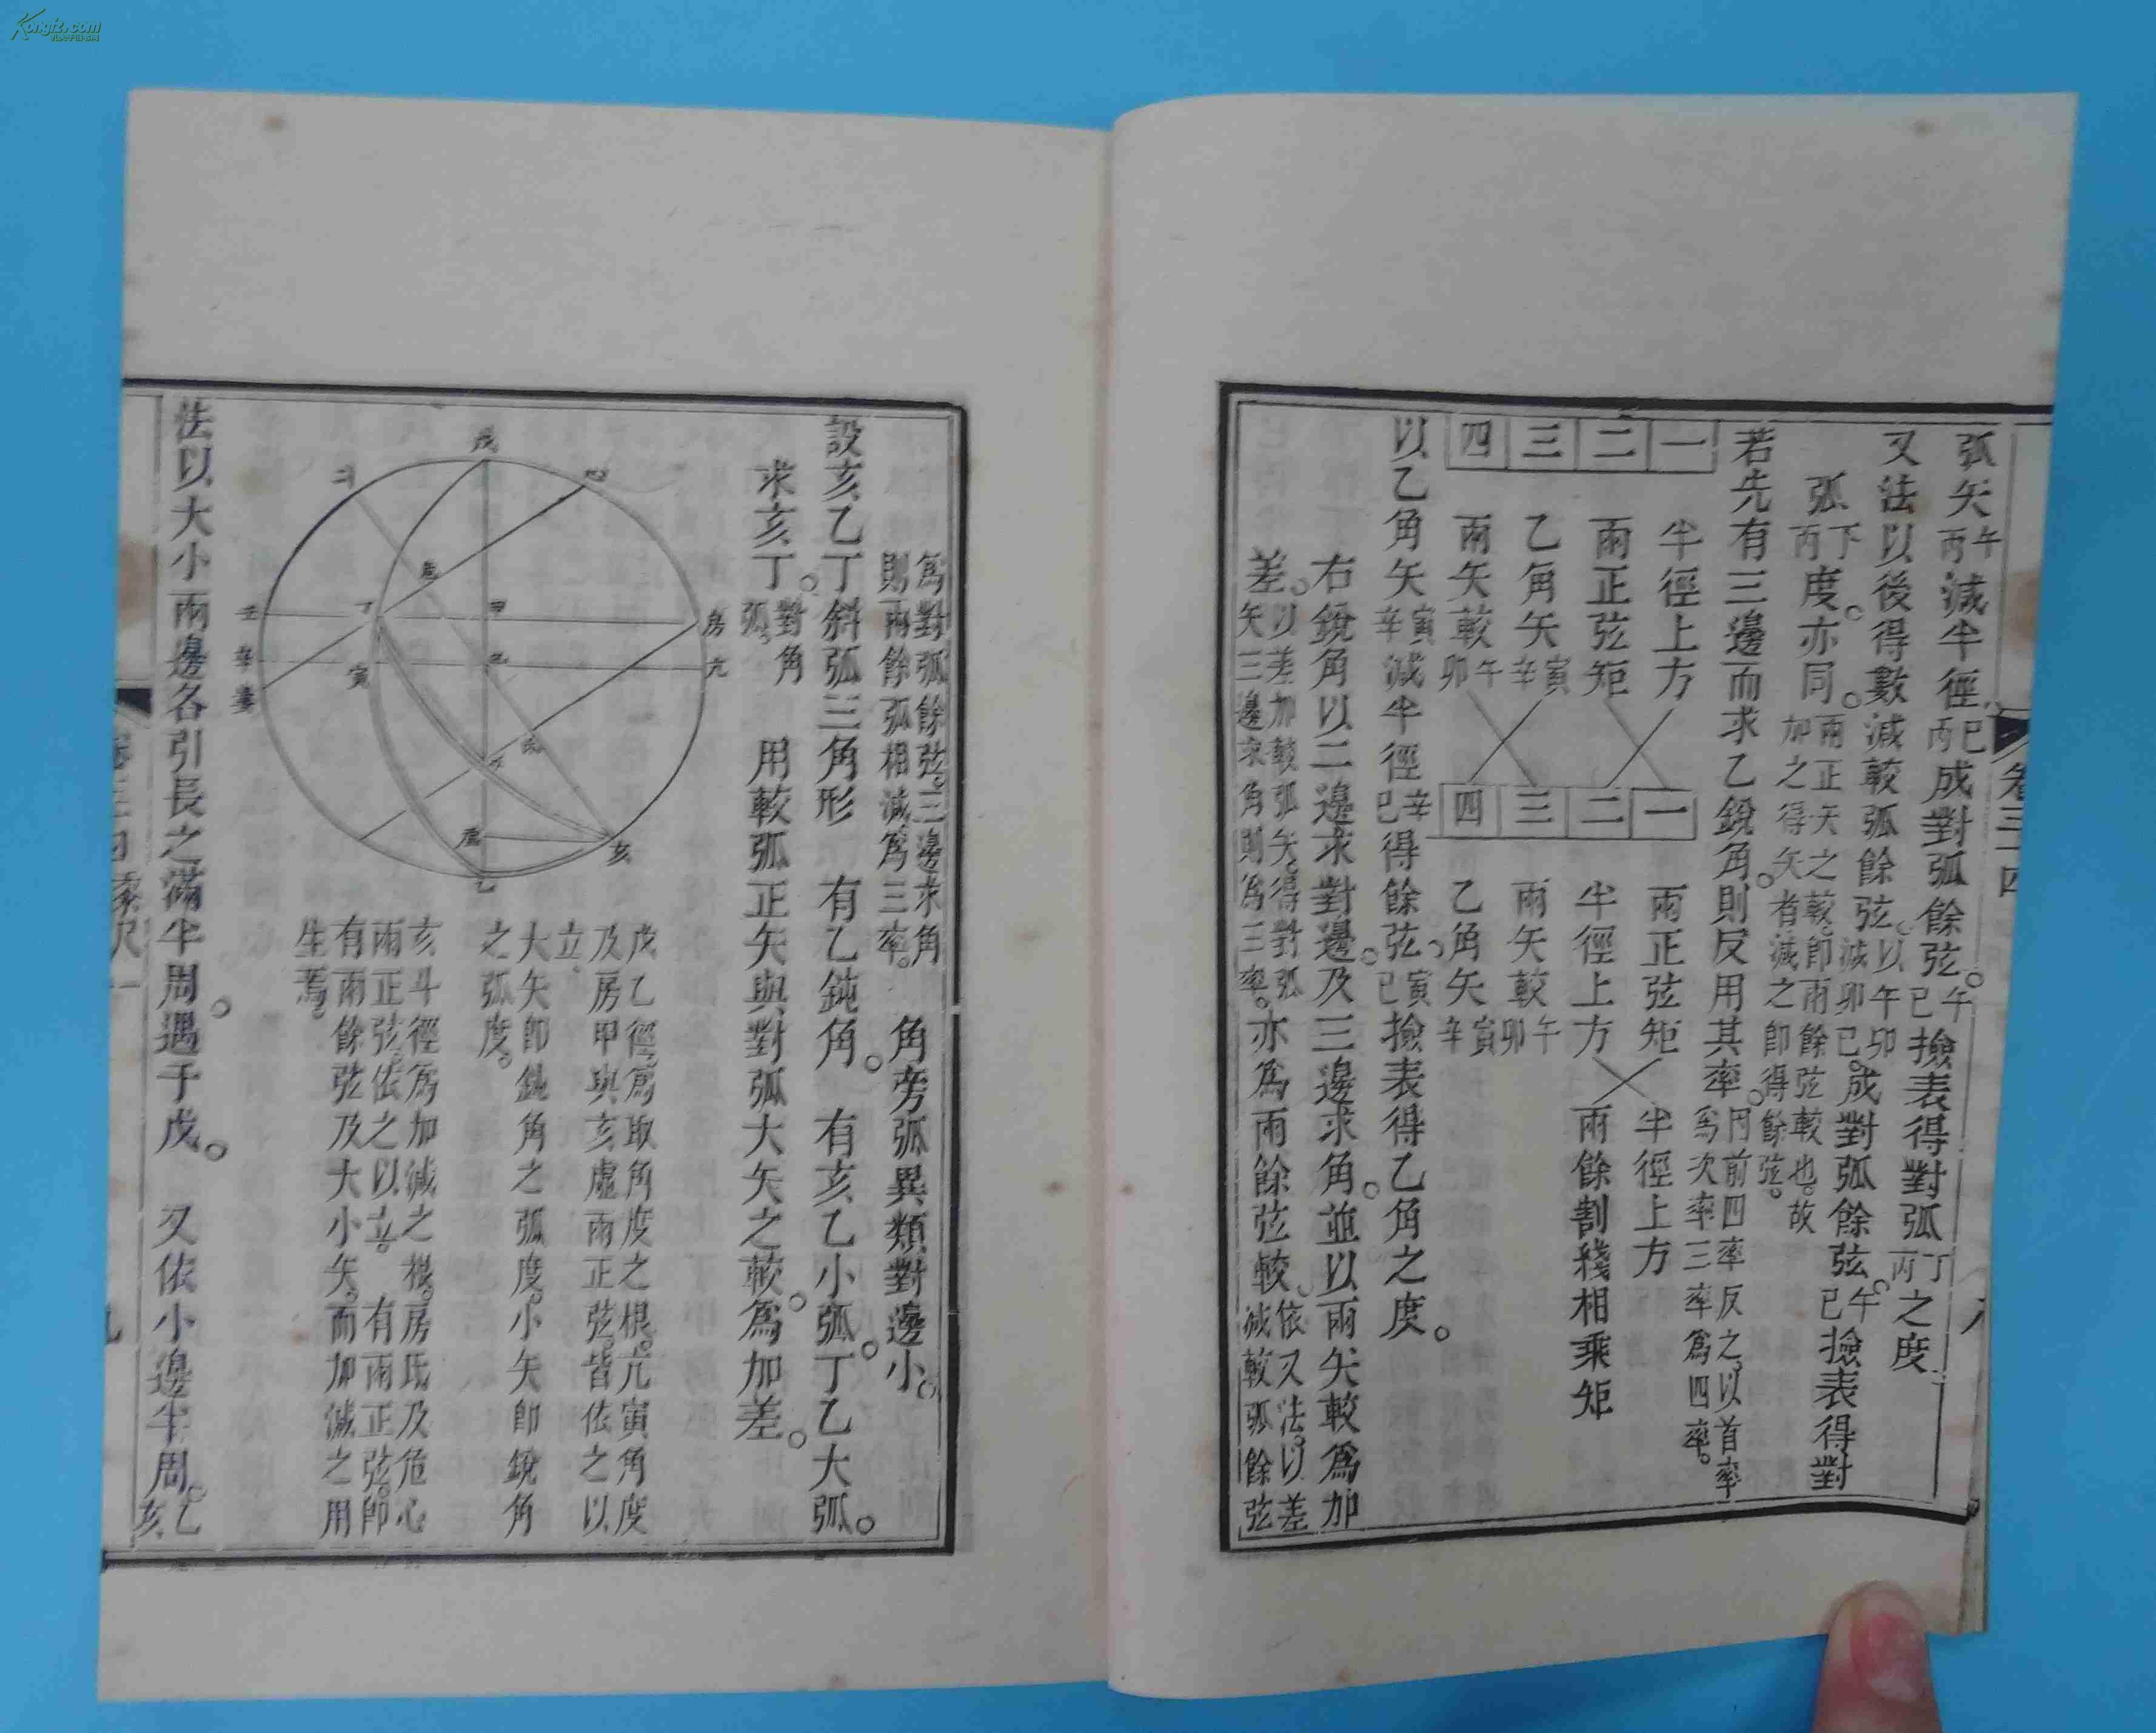 弧矢午丙減半徑巳丙成對弧餘弦。午巳撿表得對弧丁丙之度
又法以後得數減較弧餘弦。以午卯減卯巳。成對弧餘弦。午巳撿表得對
弧丙度。亦同。兩正矢之較。即兩餘弦較也。故加之得矢者。減之即得餘弦。
若先有三邊而求乙銳角。則反用其率。前四率反之。以首率為次率三率為四率。
一 半徑上方 一 兩正弦矩 半徑上方
二 兩正弦矩 二 半徑上方 兩餘割綫相乘矩
三 乙角矢寅辛 三 兩矢較午卯
四 兩矢較午卯 四 乙角矢寅辛
以乙角矢寅辛減半徑辛巳得餘弦。寅巳撿表得乙角之度。
右銳角以二邊求對邊。及三邊求角。並以兩矢較為加
差。以差加較弧矢得對弧矢三邊求角則為三率。亦為兩餘弦較。依又法。以差減較弧餘弦
卷三十四
為對弧餘弦。三邊求角則兩餘弧相減為三率。 角旁弧異類對邊小。
設亥乙丁斜弧三角形 有乙鈍角。 有亥乙小弧。丁乙大弧。
求亥丁。對角弧。 用較弧正矢與對弧大矢之較。為加差。
戊乙徑為取角度之根。亢寅角度
及房甲與亥虛兩正弦。皆依之以
立。
大矢即鈍角之弧度。小矢即銳角
之弧度。
亥斗徑為加減之根。房氐及危心
兩正弦。依之以立。 有兩正弦。即
有兩餘弦及大小矢。而加減之用
生焉。
戊 心 斗 危 壬 丁 甲 房 辛 寅 亢 婁 虛 亥 乙
法以大小兩邊各引長之滿半周。遇于戊。 又依小邊半周。乙亥